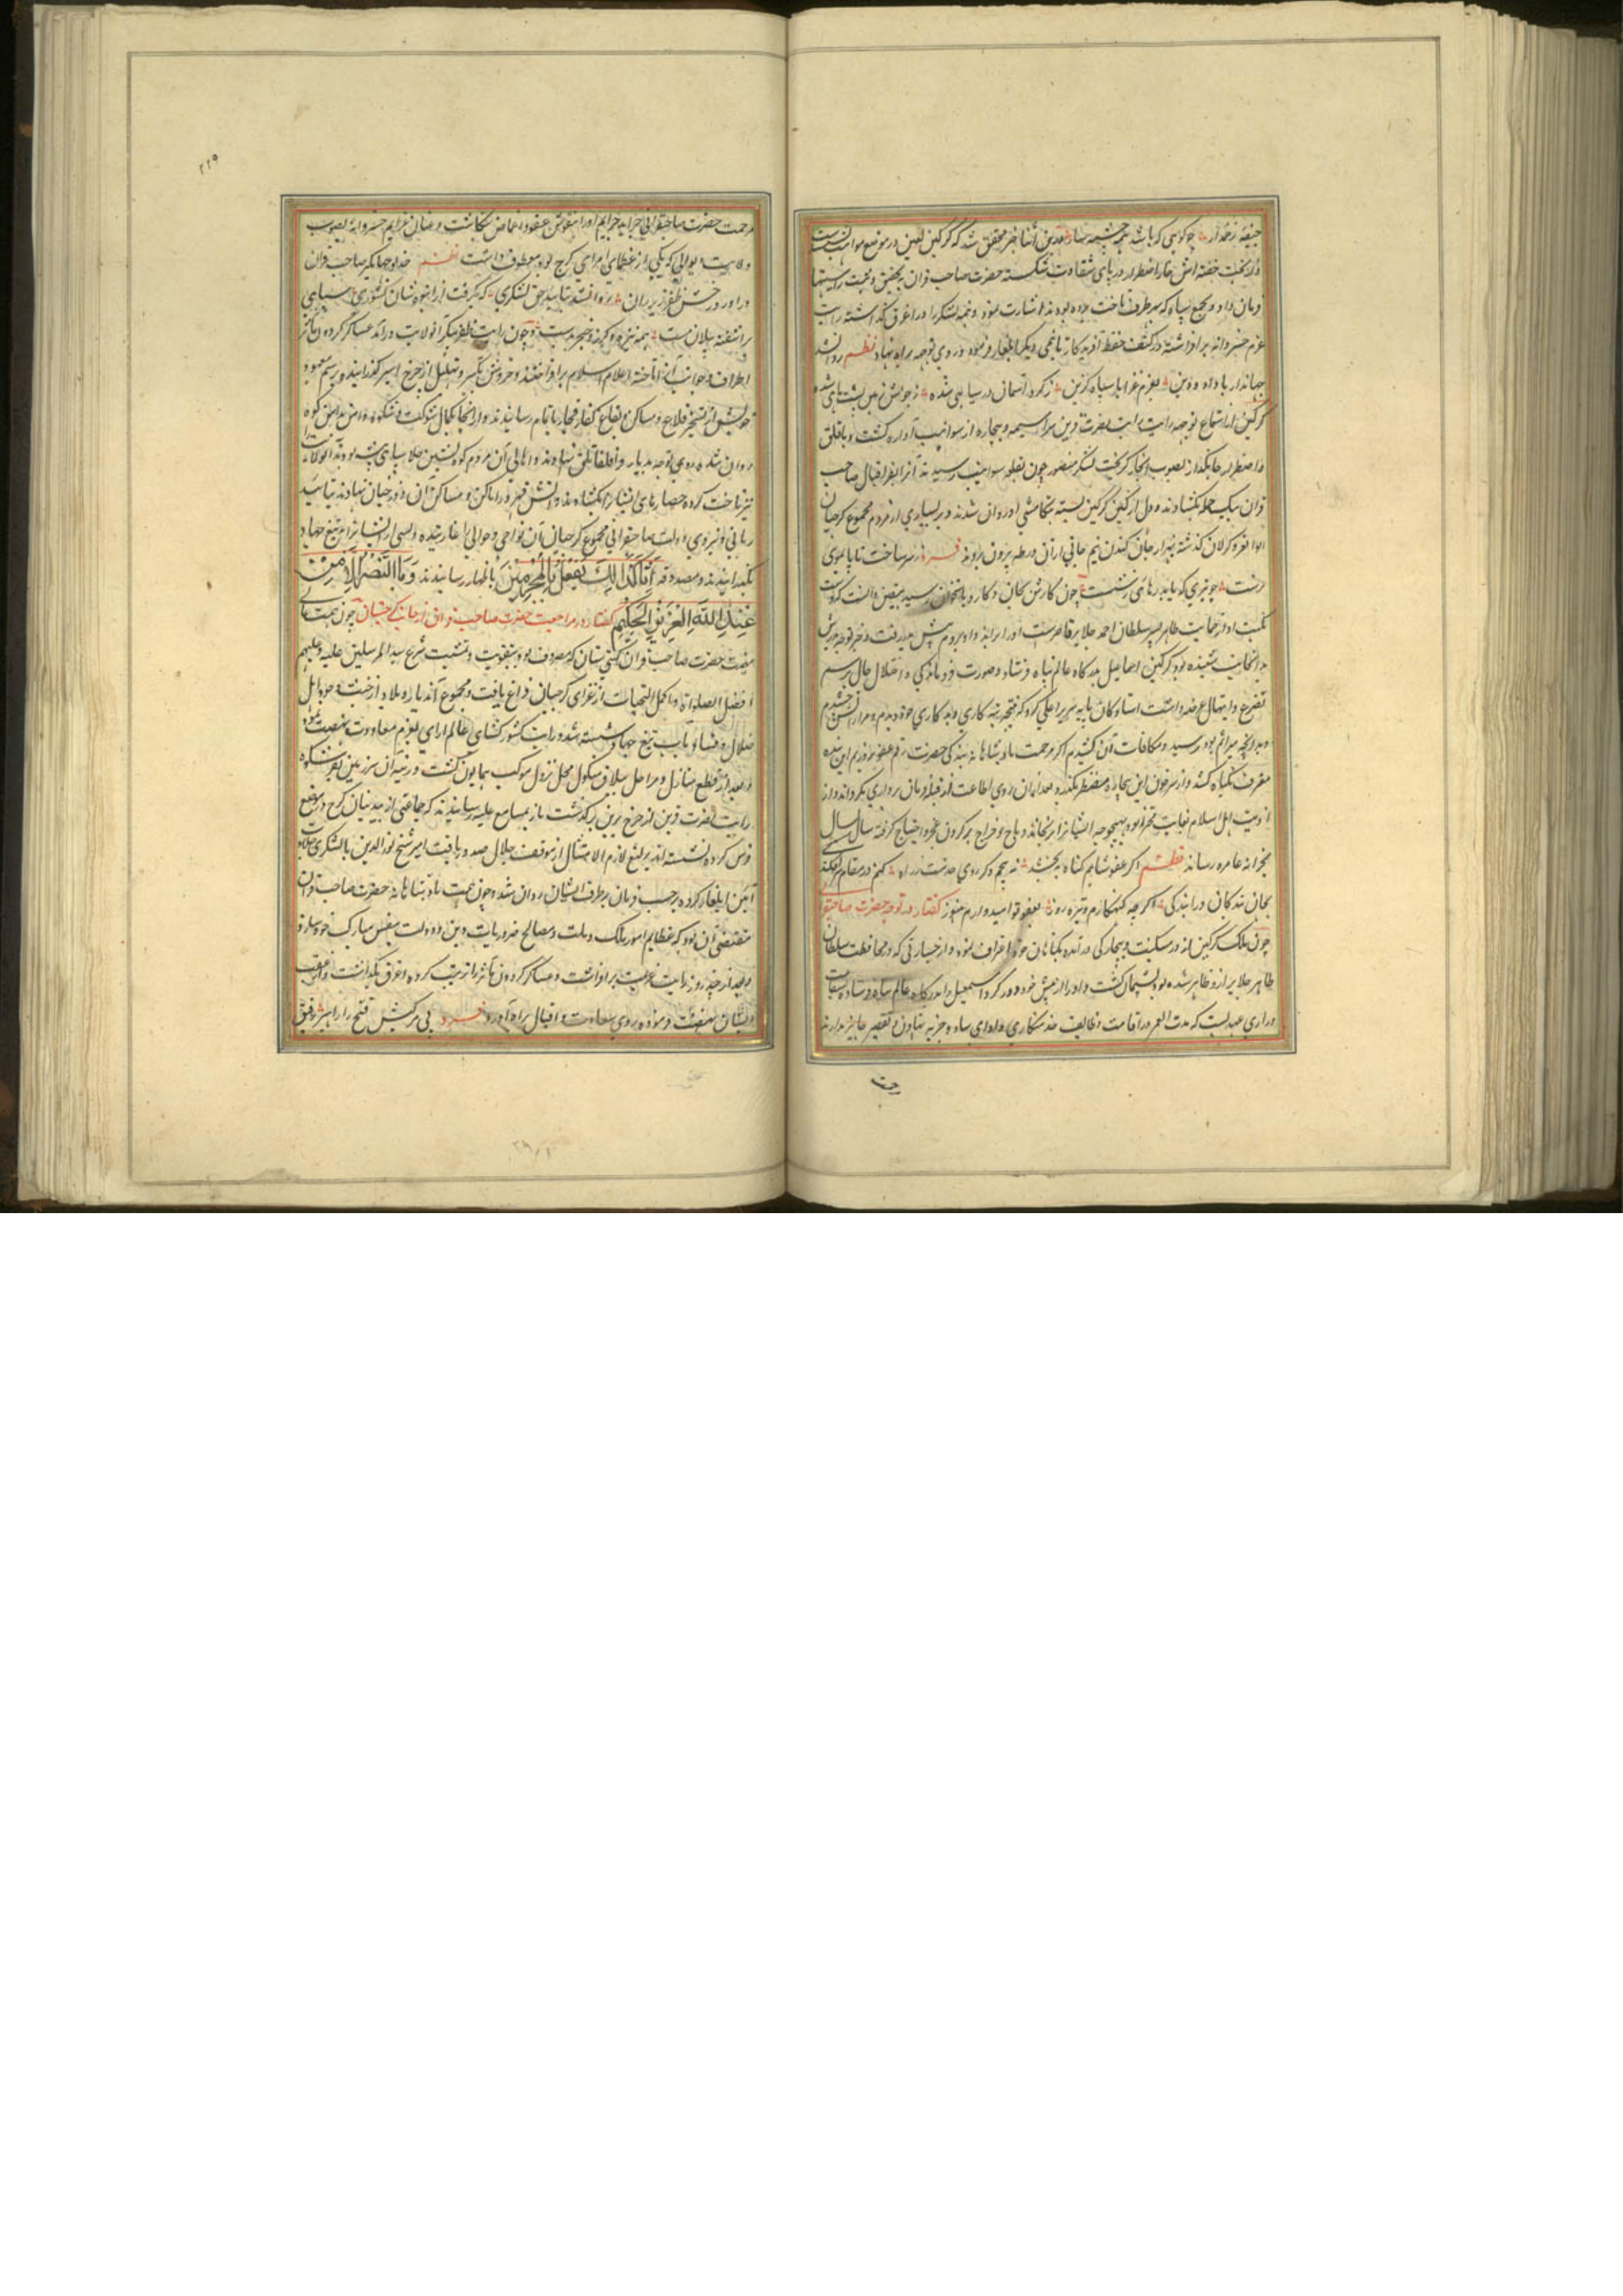 جیفه زخمدار چو کوهی که باشد بر چشمه سار درین اثنا خبر محقق شد که گرگین لعین در موضع سوانیت است
و از بخت خفته اش خار اضطرار در پای شقاوت شکسته حضرت صاحب قران بتحقیق
فرمان داد و مجموع سپاه که بهر طرف تاخت برده بودند اشارت نمود و بنه لشکر را در اغرق گذاشته رایت
عزم خسروانه برافراشته در کنف حفظ آفریدگار تا نمی دیگر ایلغار فرموده و روی توجه براه نهاد نظم روان شد
جهاندار با داد و دین بعزم غزا با سپاه گزین ز گرد آسمان در سیاهی شده ز جوشش زمین پشت ماهی شده
گرگین از استماع توجه رایت نصرت قرین سراسیمه و بیچاره از سوانیت آواره گشت و با قلق
و اضطرار جانگداز بصوب ابخاز گریخت لشکر منصور چون بقلعه سوانیت رسیدند آنرا بفر اقبال صاحب
قران بیک حمله بگشادند و دل از کین گرگین بسته بتکامشی او روان شدند و بسیاری از مردم مجموع گرجیان
گذشته بهزار جان کندن نیم جانی از آن ورطه بیرون برد فرد ز سر ساخت تا پا بموی
برست چو تیری که یابد رهایی ز شست چون کارش بجان و کارد باستخوان رسید بیقین دانست که
نکبت او از حمایت طاهر پسر سلطان احمد جلایر
بدانجانب شنیده بود گرگین اسماعیل بدرگاه عالم پناه فرستاد و صورت فروماندگی و اختلال حال برسم
تضرع و ابتهال عرضه داشت استادگان پایه سریر اعلی کرد که نتیجه تبه کاری و بد کاری خود دیدم و مرارتش چشیدم
و بدانچه سزایم بود رسید و مکافات آن کشیدم اگر مرحمت پادشاهانه بندگی حضرت رقم عفو بر جریم این بنده
معترف بگناه کشد و از سر خون این بیچاره مضطر بگذرد بعد ازان روی اطاعت از قبله فرمان برداری نگرداند و از
اذیت اهل اسلام بغایت محترز بود و بهیچ وجه ایشان را نرنجاند و باج و خراج بر گردن عجز و احتیاج گرفته سال بسال
بخزانه عامره رساند نظم اگر عفو شاهم گناه ببخشد نه پیچم دگر روی خدمت ز راه کنم در مقام سرافکندگی
بجان بندگان در ابندگی اگرچه گنهکارم و تیره روز بعفو تو امیدوارم هنوز گفتار در توجه حضرت صاحبقرانی
چون ملک گرگین از در مسکنت و بیچارگی در آمده بگناهان خود اعتراف نمود و از جسارتی که در محافظت سلطان
طاهر جلایر ازو ظاهر شده بود پشیمان گشت و او را از پیش خود دور کرد و اسمعیل را بدرگاه عالم پناه فرستاده
که مدت العمر در اقامت وظایف خدمتکاری و ادای ساو و جزیه تهاون و تقصیر جایز ندارند
مرحمت حضرت صاحبقرانی جراید جرایم او را بنقوش عفو و اغماض بنگاشت و عنان عزایم خسروانه بصوب
ولایت ایوانی که یکی از عظمای امرای گرج بود معطوف داشت نظم خدیو جهانگیر صاحب قران
درآورد رخش ظفر زیر ران روان شد بتایید حق لشکری که بگرفت از انبوه شان کشوری سپاهی
برآشفته پیلان مست همه نیزه و گرز و خنجر بدست و چون رایت ظفر پیکر آنولایت درآمد عساکر گردون مآثر
اطراف و جوانب آنرا تاخته اعلام اسلام برافراختند و خروش تکبیر و تهلیل از چرخ اثیر گذرانیدند و برسم معهود
خویش از تسخیر قلاع و مساکن و بقاع کفار فجار باتمام رسانیدند و از انجا بکمال شوکت و شکوه دامن بدامن کوه
روان شده روی توجه بدیار قراقلقانلق نهادند و اهالی آن مردم کوه نشین بلا سپاهی بیشه بودند آنولایت
نیز تاخت کرده حصارهای ایشان را بگشادند و آتش قهر در اماکن و مساکن آن دوزخیان نهادند بتایید
ربانی و نیروی دولت صاحبقرانی مجموع گرجیان آن نواحی و حوالی را غارتیده و بسی را از ایشان بر تیغ جهاد
بگذرانیدند و مصدوقه إنا کذلک نفعل بالمجرمین باظهار رسانیدند وما النصر إلا من
عند الله العزیز الحکیم گفتار در مراجعت حضرت صاحب قران از جانب گرجستان چون همت عالی
نهمت حضرت صاحب قران گیتی ستان که مصروف بود بتقویت و تمشیت شرع سید المرسلین علیه و علیهم
افضل الصلوات و اکمل التحیات از غزای گرجیان فراغ یافت و مجموع آن دیار و بلاد از خبث وجود اهل
ضلال و فساد بآب تیغ جهاد شسته شد و رایت کشور گشای عالم آرای بعزم معاودت نهضت نمود
و بعد از قطع منازل و مراحل ییلاق منکول محل نزول موکب همایون گشت و رتبه آن سرزمین بفر شکوه
رایت نصرت قرین از چرخ برین بگذشت باز بمسامع علیه رسانیدند که جماعتی از بیدینان گرج در موضع
فرس کرد نشسته اند یرلیغ لازم الامتثال از موقف جلال صدور یافت امیر شیخ نورالدین با لشکری جلادت
آیین ایلغار کرده برحسب فرمان بر طرف ایشان روان شد و چون همت پادشاهانه حضرت صاحب قران
مقتضی آن بود که عظایم امور ملک و ملت و مصالح ضروریات دین و دولت بنفس مبارک خود سازد
و بعد از چند روز رایت عزیمت برافراشت و عساکر گردون مآثر را ترتیب کرده و اغرق بگذاشت و از عقب
ایشان نهضت فرموده روی سعادت و اقبال براه آورد فرد پی مرکبش فتح را راهبر
رحمت
۲۲۹